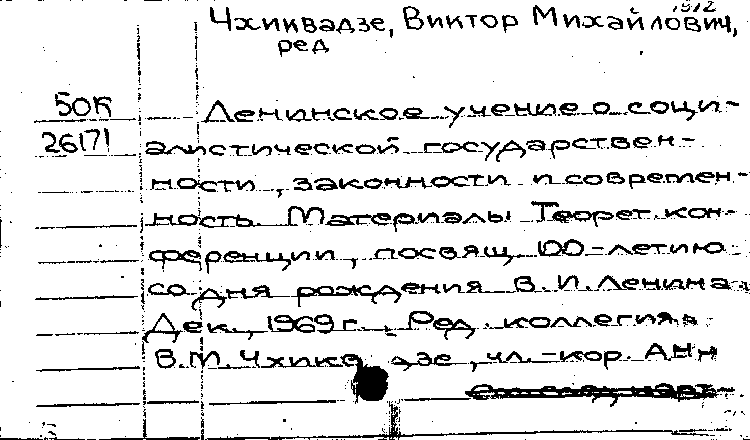 1912
Чхиквадзе, Виктор Михайлович,
ред
50К Ленинское учение о соци-
26171 алистической государствен-
ности, законности и современ-
ность. Материалы Теорет. кон-
ференции, посвящ. 100-летию
со дня рождения В.И. Ленина.
Дек., 1969 г. Ред. коллегия:
В.М. Чхикв дзе, чл.-кор. АН